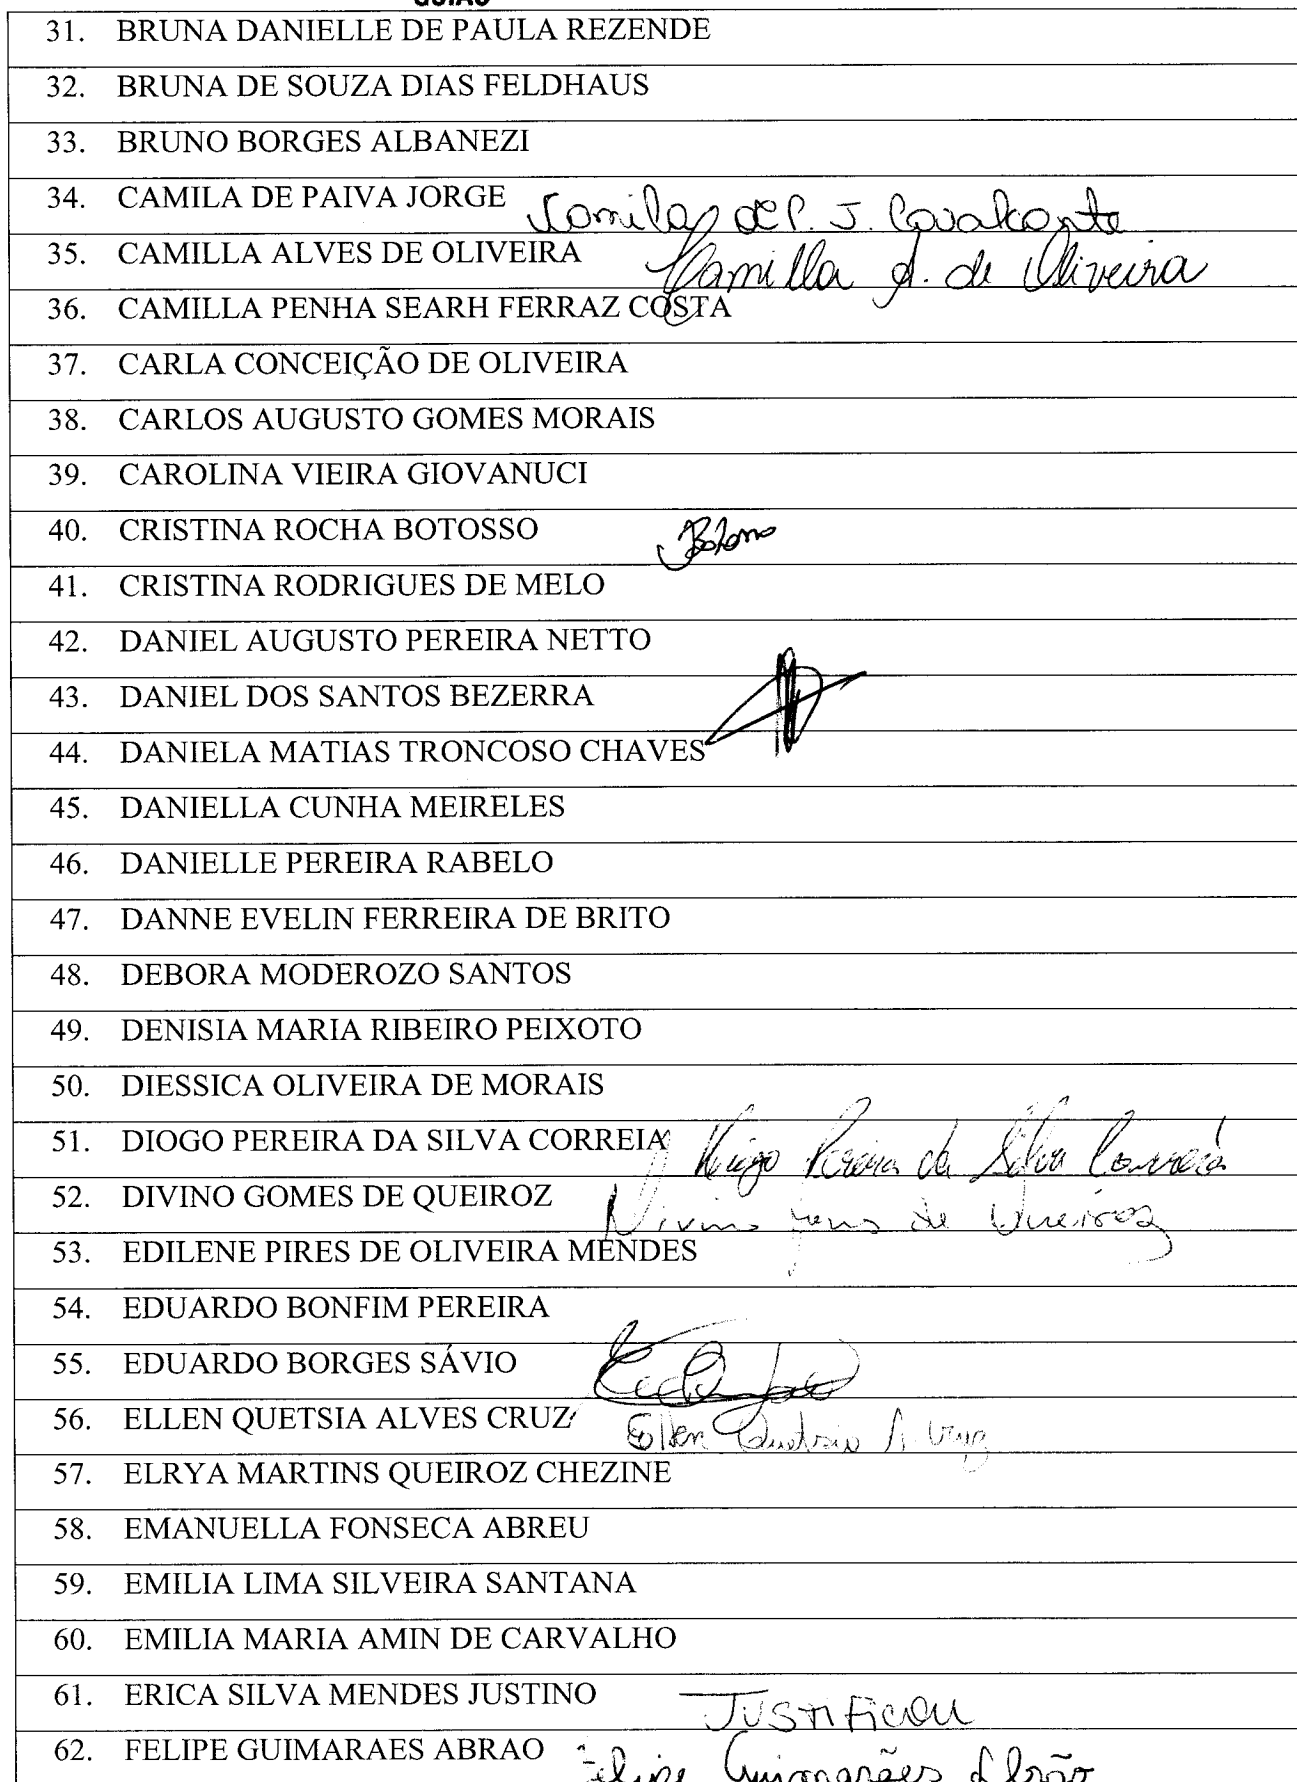 GOIÁS
31. BRUNA DANIELLE DE PAULA REZENDE
32. BRUNA DE SOUZA DIAS FELDHAUS
33. BRUNO BORGES ALBANEZI
34. CAMILA DE PAIVA JORGE Camila de P. J. Cavalcante
35. CAMILLA ALVES DE OLIVEIRA Camilla A. de Oliveira
36. CAMILLA PENHA SEARH FERRAZ COSTA
37. CARLA CONCEIÇÃO DE OLIVEIRA
38. CARLOS AUGUSTO GOMES MORAIS
39. CAROLINA VIEIRA GIOVANUCI
40. CRISTINA ROCHA BOTOSSO
41. CRISTINA RODRIGUES DE MELO
42. DANIEL AUGUSTO PEREIRA NETTO
43. DANIEL DOS SANTOS BEZERRA
44. DANIELA MATIAS TRONCOSO CHAVES
45. DANIELLA CUNHA MEIRELES
46. DANIELLE PEREIRA RABELO
47. DANNE EVELIN FERREIRA DE BRITO
48. DEBORA MODEROZO SANTOS
49. DENISIA MARIA RIBEIRO PEIXOTO
50. DIESSICA OLIVEIRA DE MORAIS
51. DIOGO PEREIRA DA SILVA CORREIA Diogo Pereira da Silva Correia
52. DIVINO GOMES DE QUEIROZ Divino Gomes de Queiroz
53. EDILENE PIRES DE OLIVEIRA MENDES
54. EDUARDO BONFIM PEREIRA
55. EDUARDO BORGES SÁVIO
56. ELLEN QUETSIA ALVES CRUZ Ellen Quetsia A. Cruz
57. ELRYA MARTINS QUEIROZ CHEZINE
58. EMANUELLA FONSECA ABREU
59. EMILIA LIMA SILVEIRA SANTANA
60. EMILIA MARIA AMIN DE CARVALHO
61. ERICA SILVA MENDES JUSTINO Justificou
62. FELIPE GUIMARAES ABRAO Felipe Guimarães Abrão